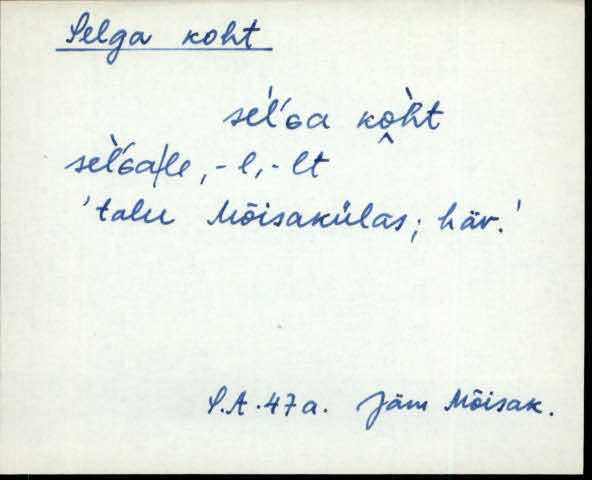 Selga koht
sèl'ɢa kò̭ht
sèl'ɢa|le, -l, -lt
'talu Mõisakülas; häv.'
S.A. 47a. Jäm Mõisak.